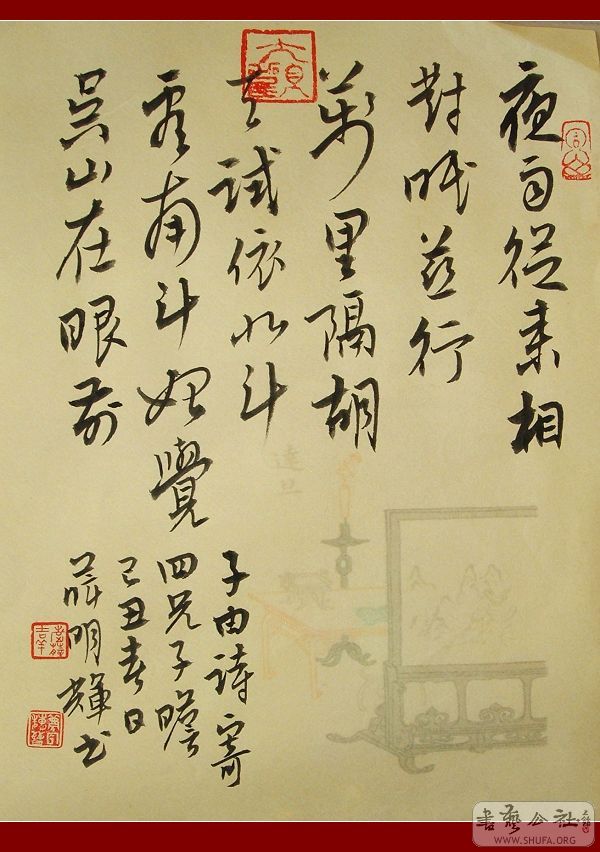 夜雨從來相
對眠茲行
萬里隔胡
天試依北斗
看南斗始覺
吳山在眼前
子由詩寄
四兄子瞻
己丑春日
明輝書
達旦
書藝公社
WWW.SHUFA.ORG